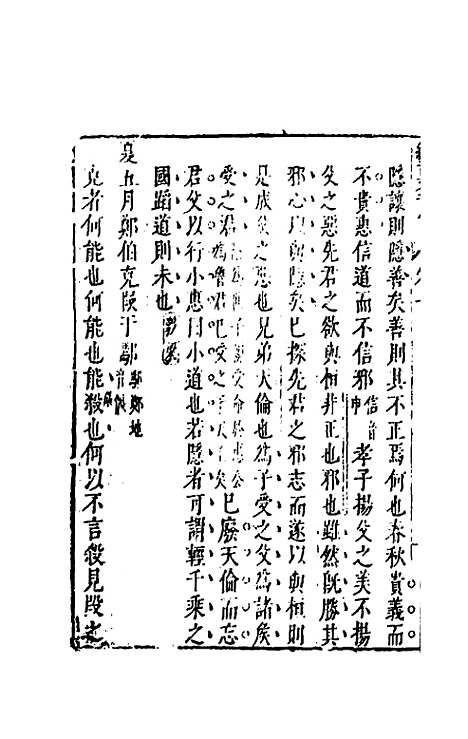 隱讓則隱善矣善則其不正焉何也春秋貴義而
不貴惠信道而不信邪信音申孝子揚父之美不揚
父之惡先君之欲與桓非正也邪也雖然既勝其
邪心以與隱矣已探先君之邪志而遂以與桓則
是成父之惡也兄弟天倫也爲子受之父爲諸侯
受之君已廢天倫而忘
君父以行小惠曰小道也若隱者可謂輕千乘之
國蹈道則未也
夏五月鄭伯克段于鄢鄢鄭地
克者何能也何能也能殺也何以不言殺見段之